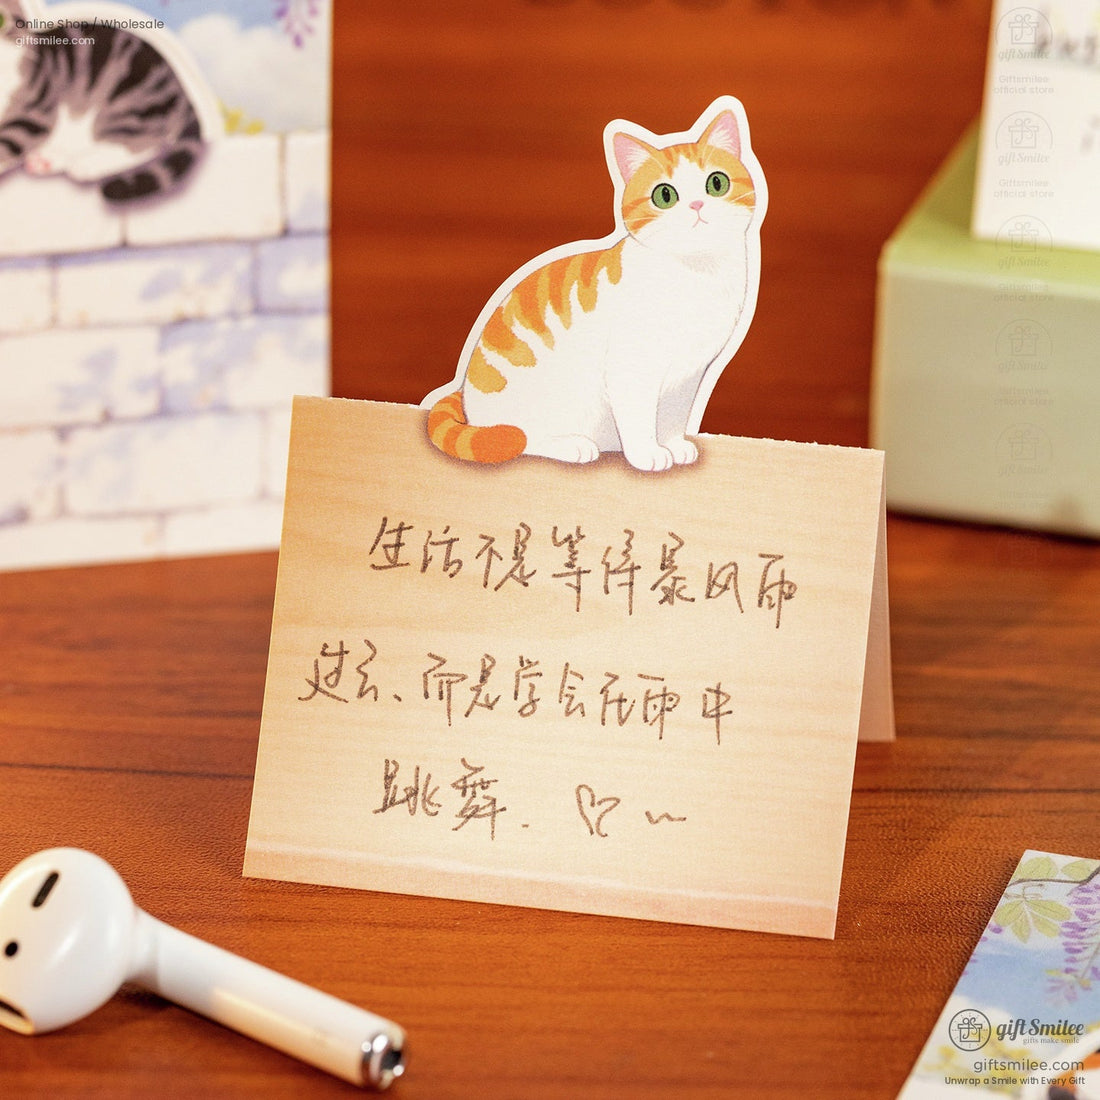 Online Shop / Wholesale
giftsmilee.com
gift Smilee
Giftsmilee
official store
gift Smilee
Giftsmilee
official store
gift Smilee
Giftsmilee
official store
gift Smilee
official store
gift Smilee
生活不是等待暴风雨
过去、而是学会在雨中
跳舞. ♡ ~
gift Smilee
gifts make smile
giftsmilee.com
Unwrap a Smile with Every Gift